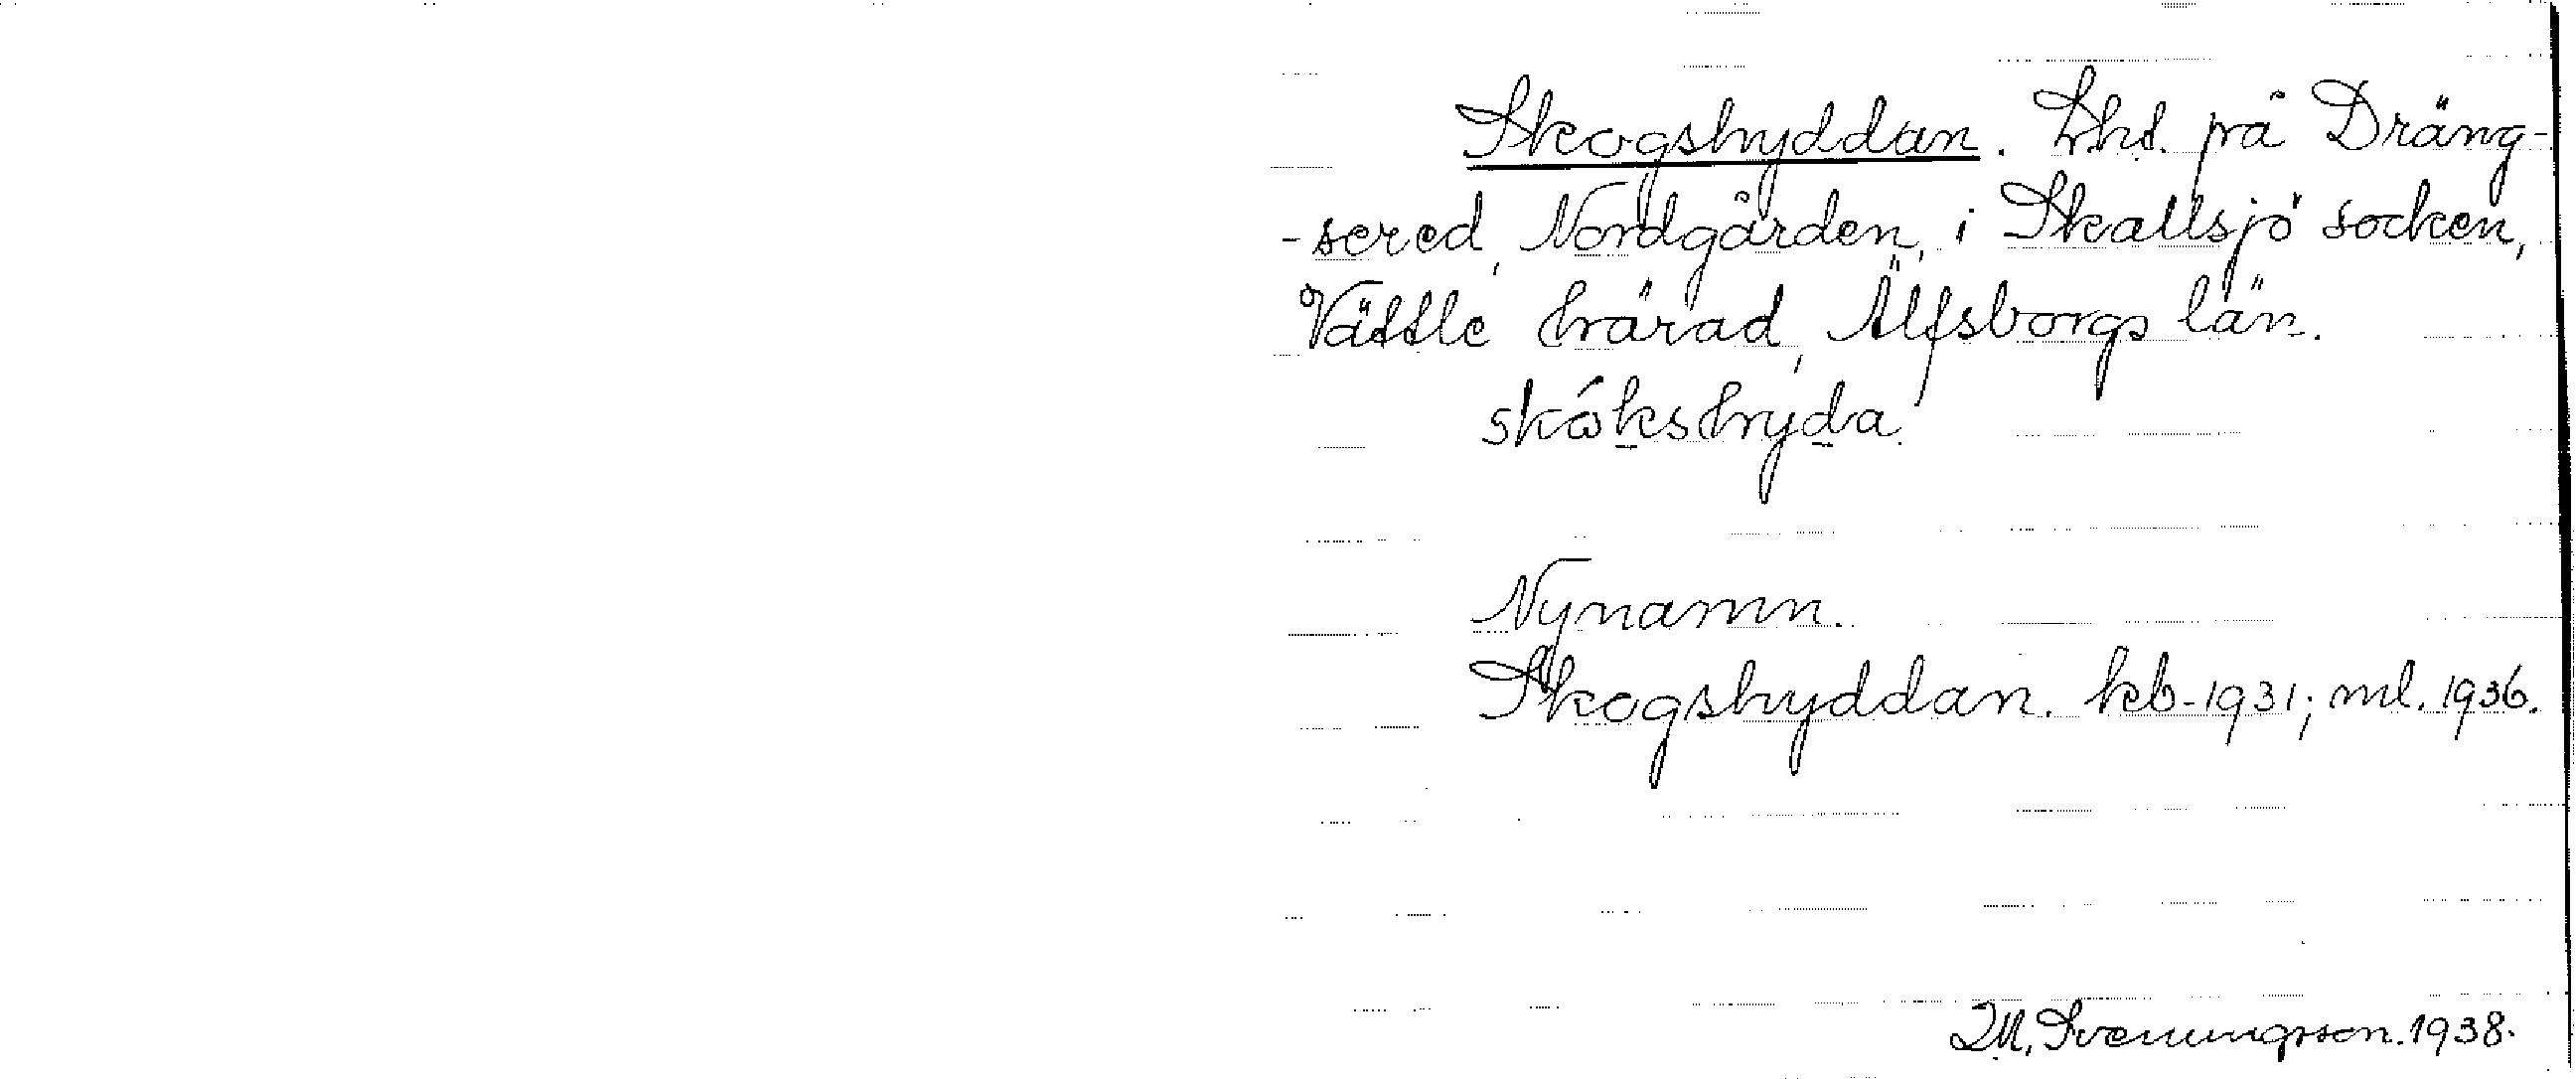 Skogshyddan. Lht. på Dräng-
-sered, Nordgården, i Skallsjö socken,
Vättle härad, Älfsborgs län.
skókshyda.
Nynamn.
Skogshyddan. kb-1931; ml. 1936.
M. Svenungsson. 1938.